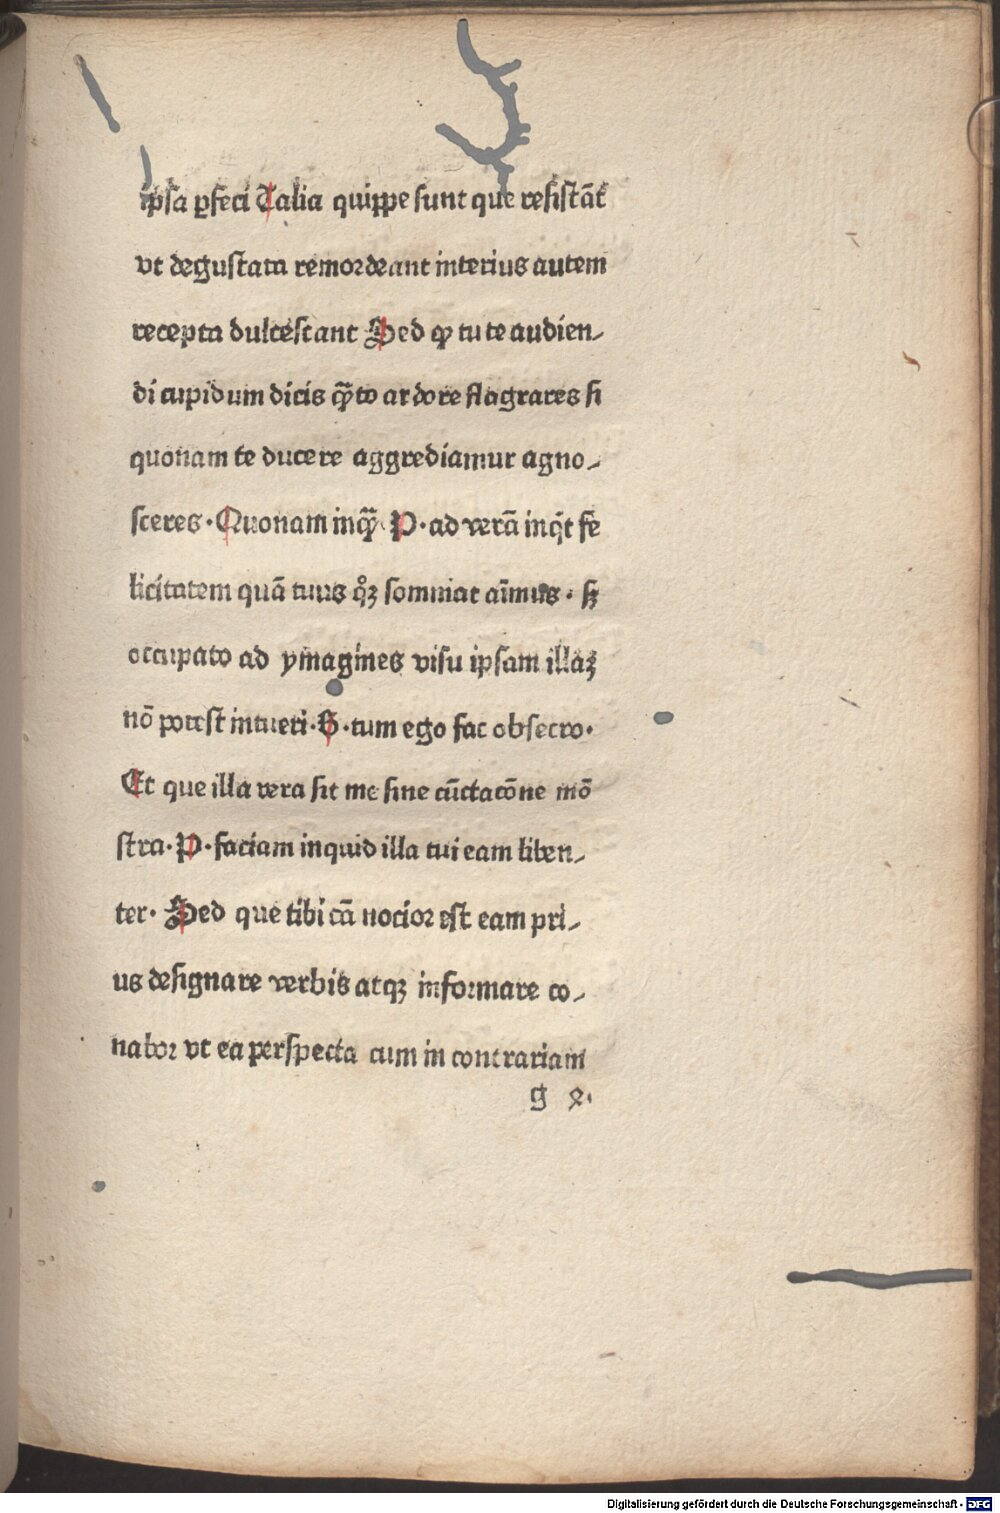 ipsa ꝑfeci Talia quippe sunt que resistāt
vt degustata remordeant interius autem
recepta dulcescant Sed ꝙ tu te audien-
di cupidum dicis qͫ̄to ardore flagrares si
quonam te ducere aggrediamur agno-
sceres·Quonam inqͫ̄ P·ad verā inqͥt fe
licitatem quā tuus qͦꝫ somniat aīmus·sꝫ
occupato ad ymagines visu ipsam illaꝫ
nō potest intueri·B·tum ego fac obsecro·
Et que illa vera sit me sine cūctacōne mō
stra·P·faciam inquid illa tui eam liben-
ter·Sed que tibi cā nocior est eam pri-
us designare verbis atqꝫ informare co-
nabor vt ea perspecta cum in contrariam
g 2·
Digitalisierung gefördert durch die Deutsche Forschungsgemeinschaft - DFG